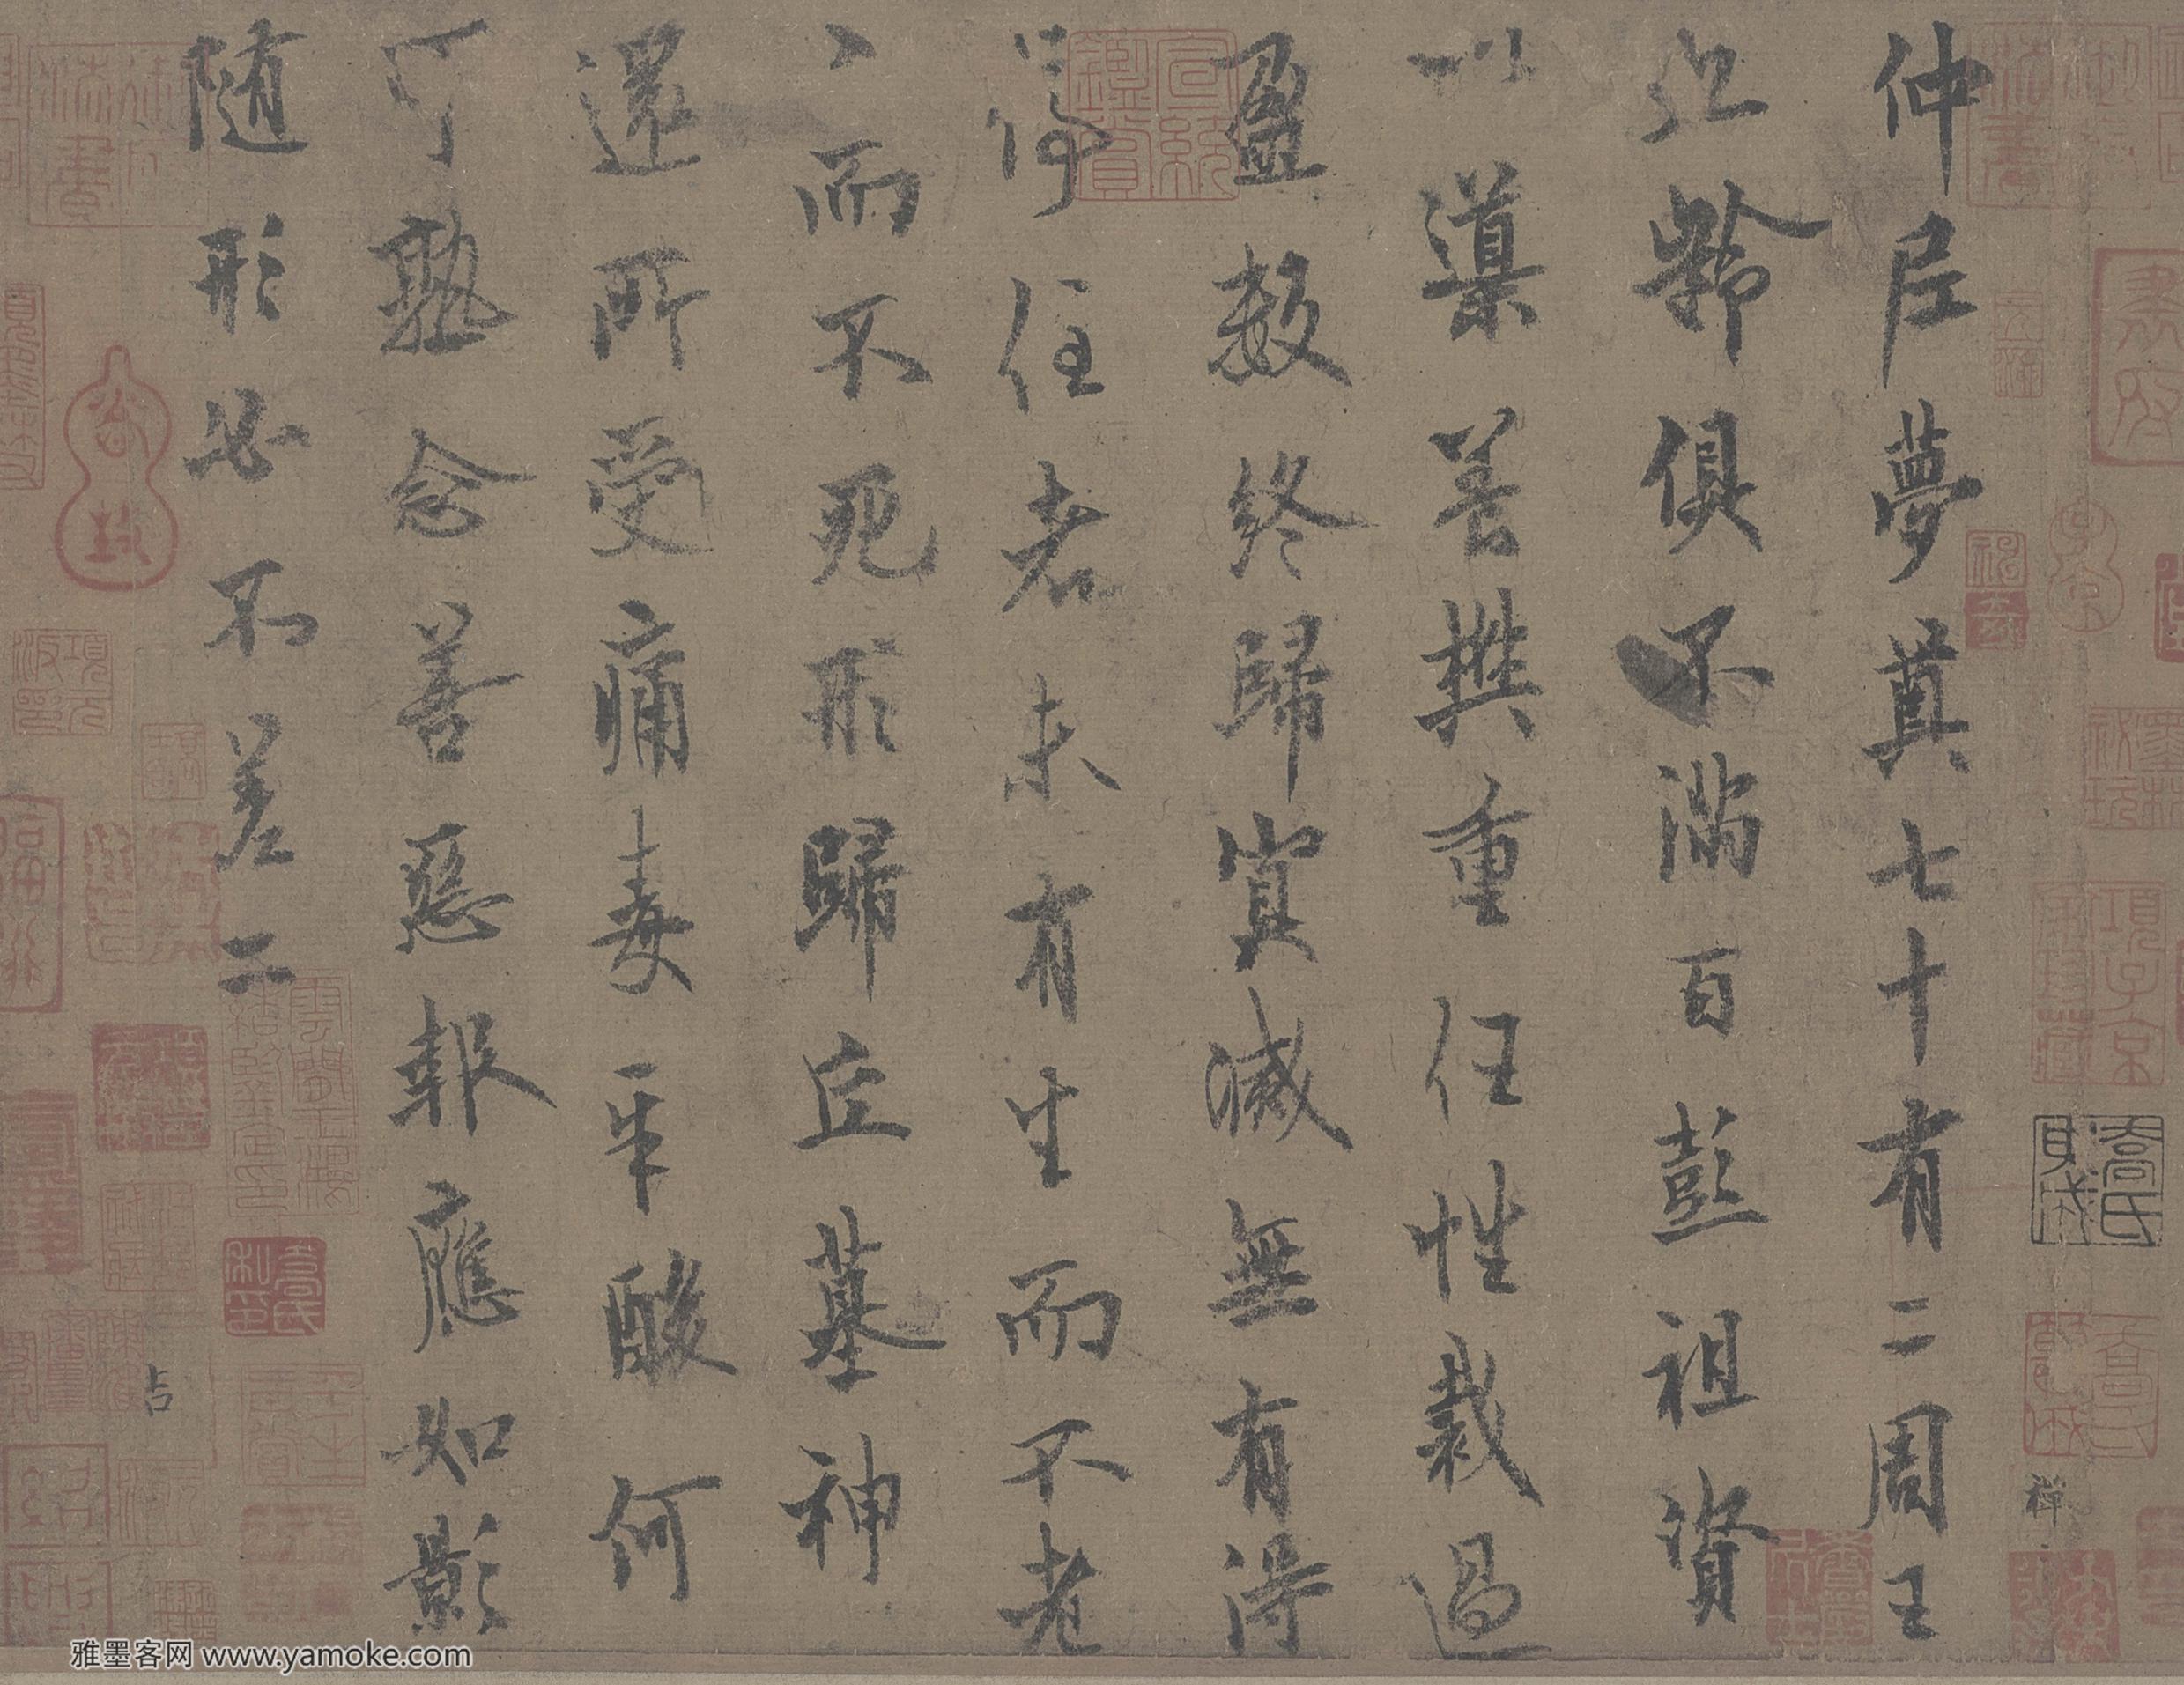 仲尼夢奠七十有二周王
九齡俱不滿百彭祖資
以導養樊重任性裁過
盈數終歸冥滅無有得
停住者未有生而不老
〻而不死形歸丘墓神
還所受痛毒辛酸何
可熟念善惡報應如影
隨形必不差二
雅墨客网 www.yamoke.com